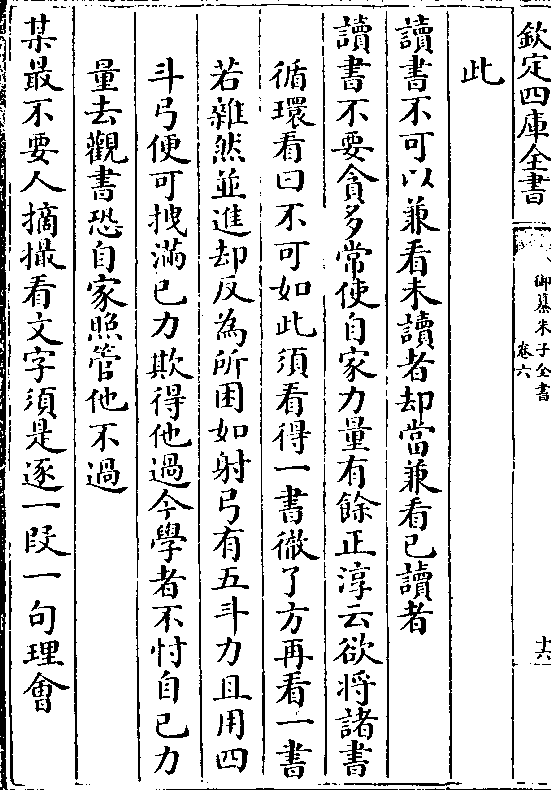 欽定四庫全書
御纂朱子全書
卷六
十六
此
讀書不可以兼看未讀者却當兼看已讀者
讀書不要貪多常使自家力量有餘正淳云欲將諸書
循環看曰不可如此須看得一書徹了方再看一書
若雜然並進却反為所困如射弓有五斗力且用四
斗弓便可拽滿已力欺得他過今學者不忖自已力
量去觀書恐自家照管他不過
某最不要人摘撮看文字須是逐一段一句理會